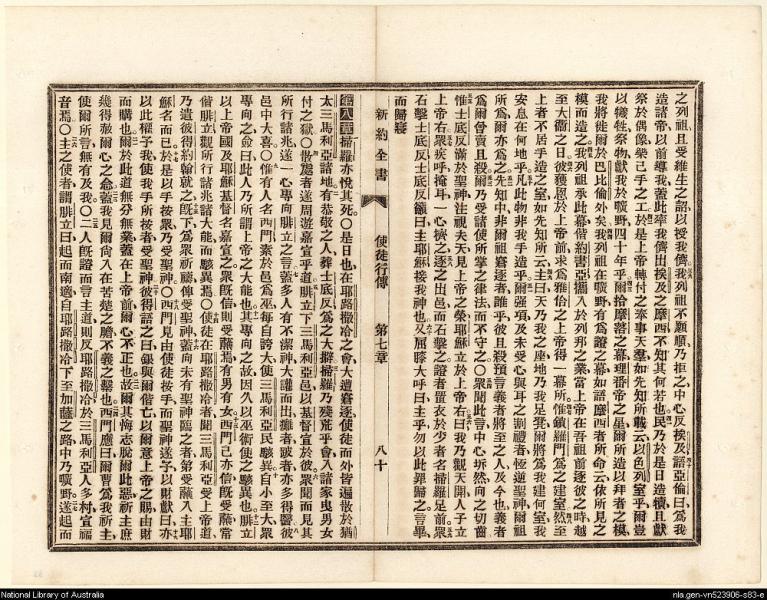 之列祖且受維生之詔以授我儕我列祖不願順乃拒之中心反埃及語亞倫曰爲我
造諸帝以前導我蓋此率我儕出埃及之摩西不知其何若也民乃於是日造犢且獻
祭於偶像樂己手之工於是上帝轉付之奉事天羣如先知所載云以色列室乎爾豈
以犧牲祭物獻我於曠野四十年乎爾抬摩落之幕理番帝之星爾所造以拜者之模
我將徙爾於巴比倫外矣我列祖在曠野有爲證之幕如語摩西者所命云依所見之
模而造之我列祖承此幕偕約書亞攜入於列邦之業當上帝在吾祖前逐彼之時越
至大闢之日彼獲恩於上帝前求爲雅伯之上帝得一幕所惟鎖羅門爲之建室然至
上者不居手造之室如先知所云主曰天乃我之座地乃我足凳爾將爲我建何室我
安息在何地乎凡此物非我手造乎爾強項及未受心與耳之割禮者恆逆聖神爾祖
所爲爾亦爲之先知中非爾祖窘逐者誰乎彼且殺預言義者將至之人及今也義者
爲爾曾賣且殺爾乃受諸使所掌之律法而不守之〇衆聞此言中心忿然向之切齒
惟士底反滿於聖神注視天見上帝之榮耶穌立於上帝右曰我乃觀天開人子立
上帝右衆疾呼掩耳一心擠之逐之出邑而石擊之證者置衣於少者名掃羅足前衆
石擊士底反士底反籲曰主耶穌接我神也又屈膝大呼曰主乎勿以此罪歸之言畢
而歸寢
新約全書 使徒行傳 第七章 八十
第八章掃羅亦悅其死〇是日也在耶路撒冷之會大遭窘逐使徒而外皆遍散於猶
太三馬利亞諸地有恭敬之人葬士底反爲之大擗掃羅乃殘荒乎會入諸家曳男女
付之獄〇散處者遂周遊嘉宣乎道腓立下三馬利亞邑以基督宣於彼衆聞而見其
所行諸兆遂一心專向腓立之言蓋多人有不潔神大讙而出癱者跛者亦多得醫彼
邑中大喜〇惟有人名西門素於邑爲巫每自誇大使三馬利亞民駭異自小至大衆
專向之僉曰此人乃所謂上帝之大能也其專向之故因久以巫術使之駭異也腓立
以上帝國及耶穌基督名嘉宣之衆旣信則受蘸焉有男有女西門己亦信旣受蘸常
偕腓立觀所行諸兆諸大能而駭異焉〇使徒在耶路撒冷者聞三馬利亞受上帝道
乃遣彼得約翰就之旣下爲衆祈禱俾受聖神蓋向未有聖神臨之者第受蘸入主耶
穌名而已於是以手按衆乃受聖神〇西門見由使徒按手而聖神遂予以財獻曰亦
以此權予我使我手所按者受聖神彼得語之曰銀與爾偕亡以爾意上帝之賜由財
而購也爾於此道無分無業蓋在上帝前爾心不正也故爾其悔志脫爾此惡祈主庶
幾得赦爾心之僉蓋我見爾向入在苦楚之膽不義之繫也西門應曰爾曹爲我祈主
使爾所言無有及我〇二人旣證而言主道則反耶路撒冷於三馬利亞人多村宣福
音焉〇主之使者謂腓立曰起而南適自耶路撒冷下至加薩之路中乃曠野遂起而
National Library of Australia
nla.gen-vn523906-s83-e